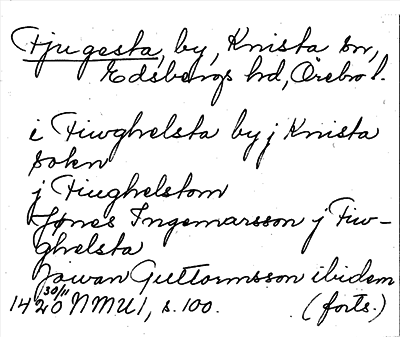 Tjugesta, by, Knista sn,
Edsbergs hd, Örebro l.
i Tiwghelsta by j Knista
sokn
j Tiughelstom
Jønes Ingemarsson j Tiw-
ghelsta
Jawan Guttormsson ibidem
1420 30/11 NMU 1, s. 100. (forts.)